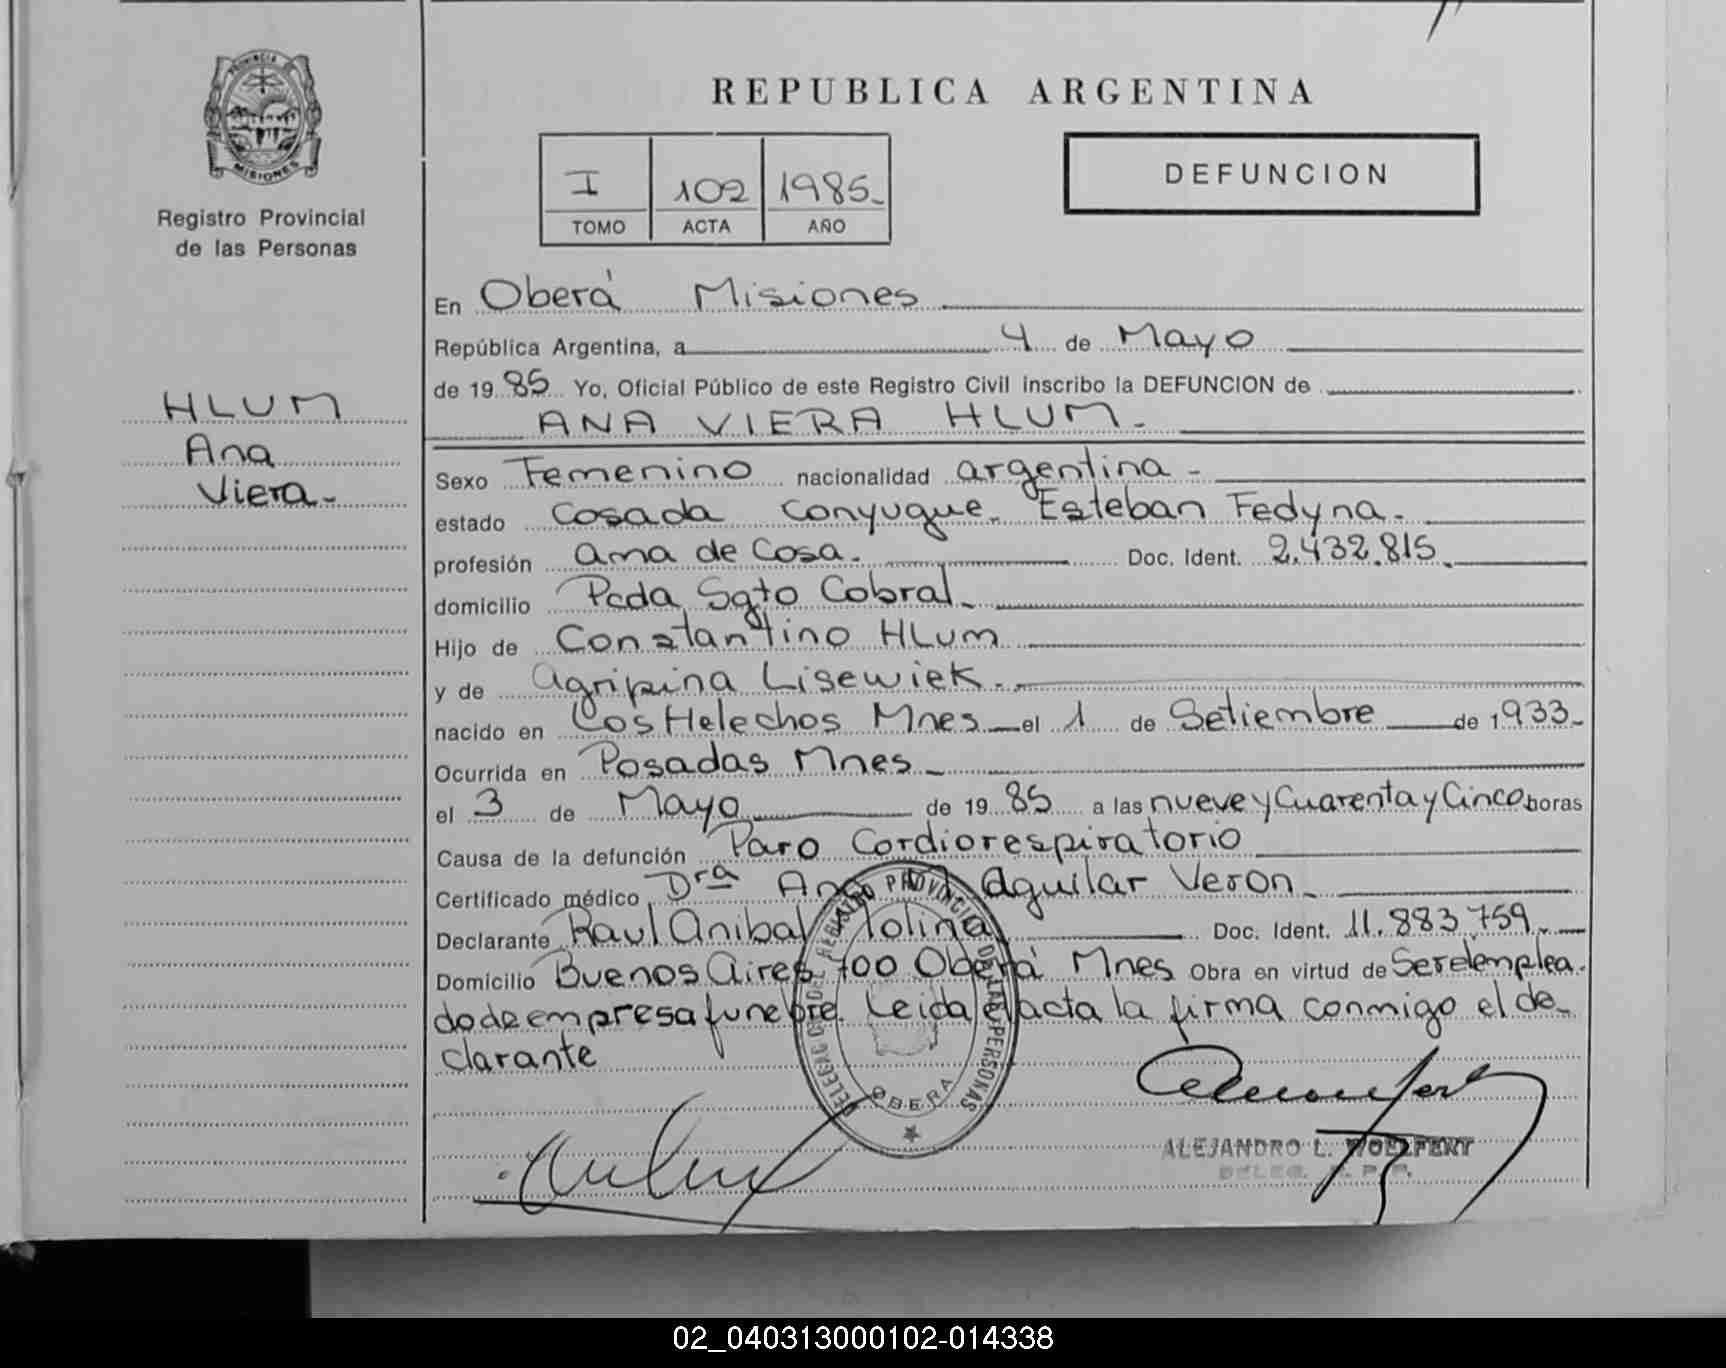 PROVINCIA DE
MISIONES
Registro Provincial
de las Personas
HLUM
Ana
Viera.-
REPUBLICA ARGENTINA
DEFUNCION
I 102 1985.-
TOMO ACTA AÑO
En Oberá Misiones
República Argentina, a 4 de Mayo
de 1985 Yo, Oficial Público de este Registro Civil inscribo la DEFUNCION de
ANA VIERA HLUM.-
Sexo Femenino nacionalidad argentina -
estado Casada Conyugue. Esteban Fedyna.-
profesión ama de Casa. Doc. Ident. 2.432.815.
domicilio Pcda Sgto Cabral.-
Hijo de Constantino HLum
y de Agripina Lisewiek.-
nacido en Los Helechos Mnes el 1 de Setiembre de 1933.-
Ocurrida en Posadas Mnes.-
el 3 de Mayo de 1985 a las nueve y Cuarenta y Cinco horas
Causa de la defunción Paro Cardiorespiratorio
Certificado médico Drª Aguilar Veron.
Declarante Raul Anibal Molina Doc. Ident. 11.883.759.-
Domicilio Buenos Aires 700 Oberá Mnes Obra en virtud de Ser elemplea-
do de empresa funebre. Leida el acta la firma conmigo el de-
clarante
DELEGAC. DEL REGISTRO PROVINCIAL DE LAS PERSONAS
OBERA
ALEJANDRO L. WOELFERT
DELEG. R. P. P.
02_040313000102-014338